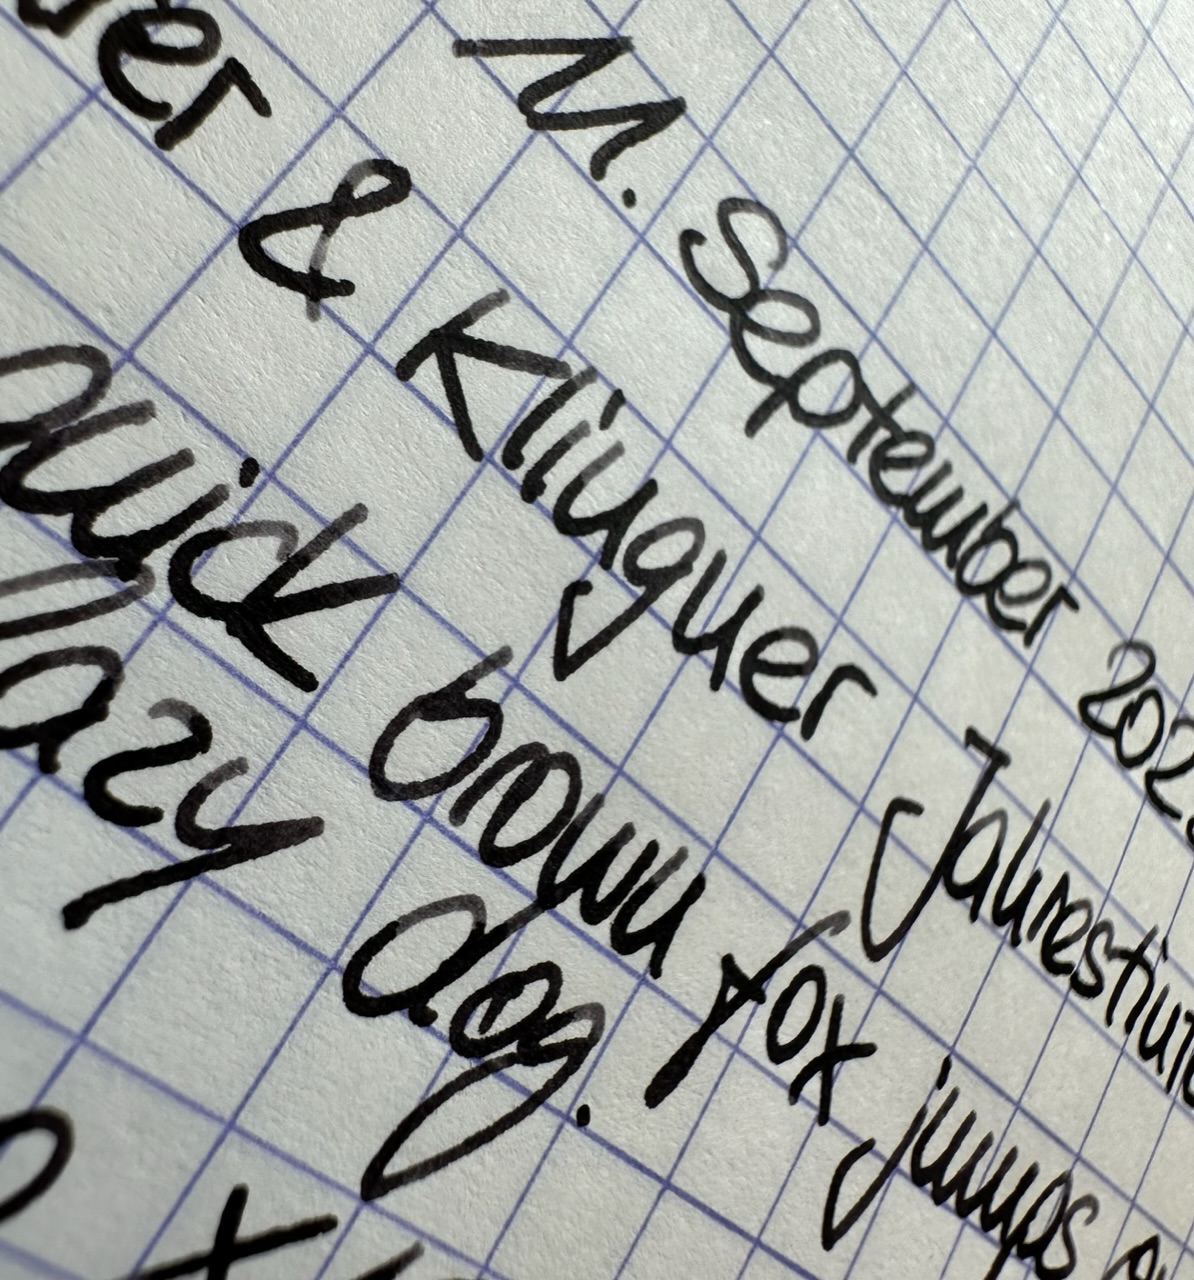 11. September 202
er & Klingner Jahrestint
quick brown fox jumps
lazy dog.